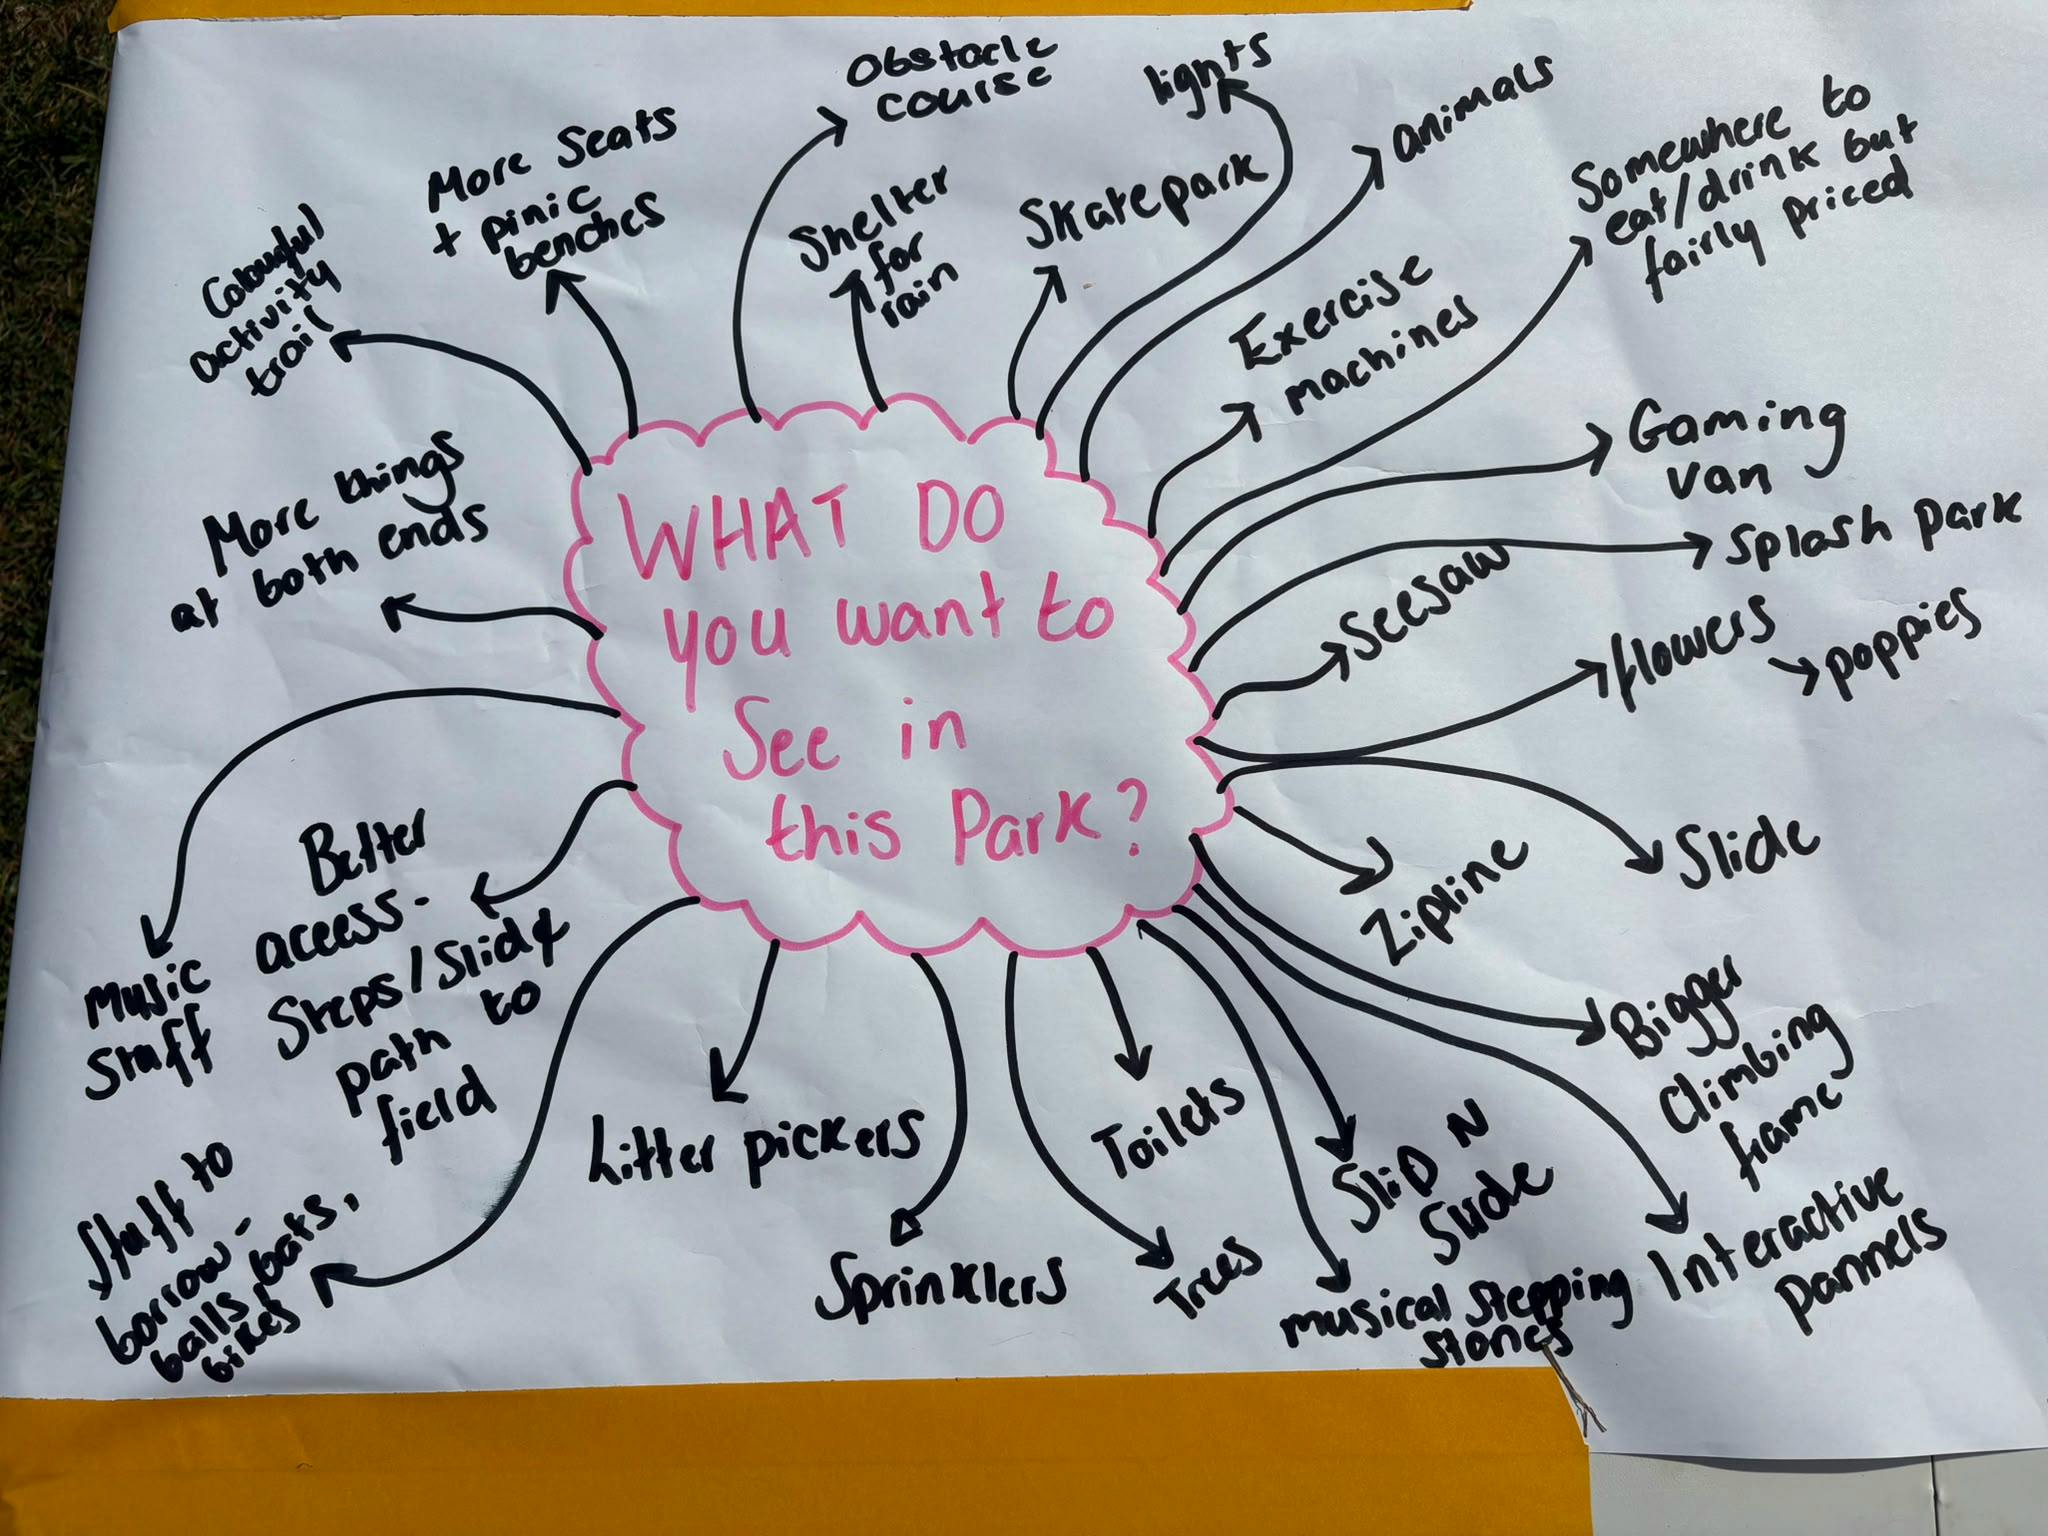 WHAT DO
you want to
See in
this Park?
Colourful
activity
trail
More Seats
+ pinic
benches
Obstacle
course
Shelter
for
rain
Skatepark
lights
animals
Exercise
machines
Somewhere to
eat/drink but
fairly priced
Gaming
van
Splash park
Seesaw
flowers
poppies
Slide
Zipline
Bigger
Climbing
frame
Interactive
pannels
Slip N
Slide
musical stepping
stones
Toilets
Trees
Sprinklers
Litter pickers
Stuff to
borrow -
balls, bats,
bikes
Better
access -
Steps/slide
path to
field
Music
Stuff
More things
at both ends